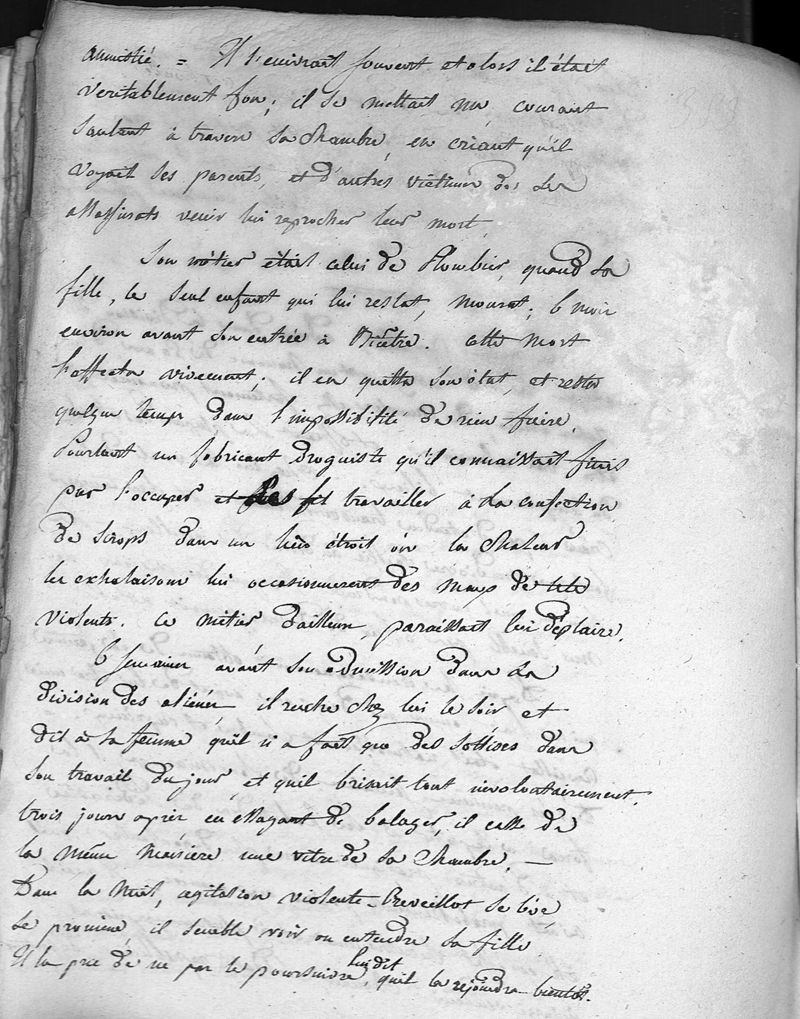 amnistié. = Il s'enivrait souvent et alors il était
véritablement fou; il se mettait nu, courant
sautant à travers sa chambre, en criant qu'il
voyait ses parents, et d'autres victimes des
assassinats venir lui reprocher leur mort.
Son métier était celui de Plombier, quand sa
fille, le seul enfant qui lui restat, mourut; 6 mois
environ avant son entrée à Bicêtre. Cette mort
l'affecta vivement; il en quitta son état, et resta
quelque temps dans l'impossibilité de rien faire.
Pourtant un fabricant droguiste qu'il connaissait finit
par l'occuper et le fit travailler à la confection
de sirops dans un lieu étroit où la chaleur
les exhalaisons lui occasionnerent des maux de tête
violents. Ce métier d'ailleurs, paraissait lui déplaire.
6 semaines avant son admission dans la
division des aliénés il rentre chez lui le soir et
dit à sa femme qu'il n'a fait que des sottises dans
son travail du jour, et qu'il brisait tout involontairement.
trois jours après en essayant de balayer, il casse de
la même manière une vitre de sa chambre. —
Dans la nuit, agitation violente. Breveillot se lève
se promène, il semble voir ou entendre sa fille
Il la prie de ne pas le poursuivre, lui dit qu'il la rejoindra bientôt.